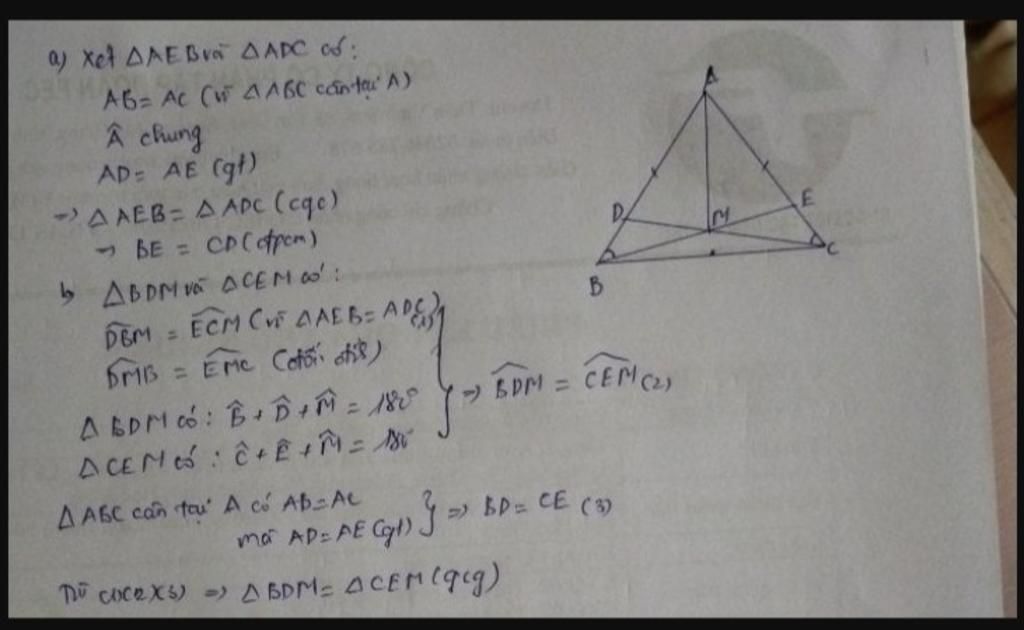 a) Xét △AEB và △ADC có:
AB = AC (vì △ABC cân tại A)
Â chung
AD = AE (gt)
=> △AEB = △ADC (cgc)
=> BE = CD (đpcm)
b, △BDM và △CEM có:
DBM = ECM (vì △AEB = ADC) (1)
DMB = EMC (đối đỉnh)
△BDM có: B̂ + D̂ + M̂ = 180°
△CEM có: Ĉ + Ê + M̂ = 180°
=> BDM = CEM (2)
△ABC cân tại A có AB = AC
mà AD = AE (gt)
=> BD = CE (3)
Từ (1)(2)(3) => △BDM = △CEM (gcg)
A
D
M
E
B
C